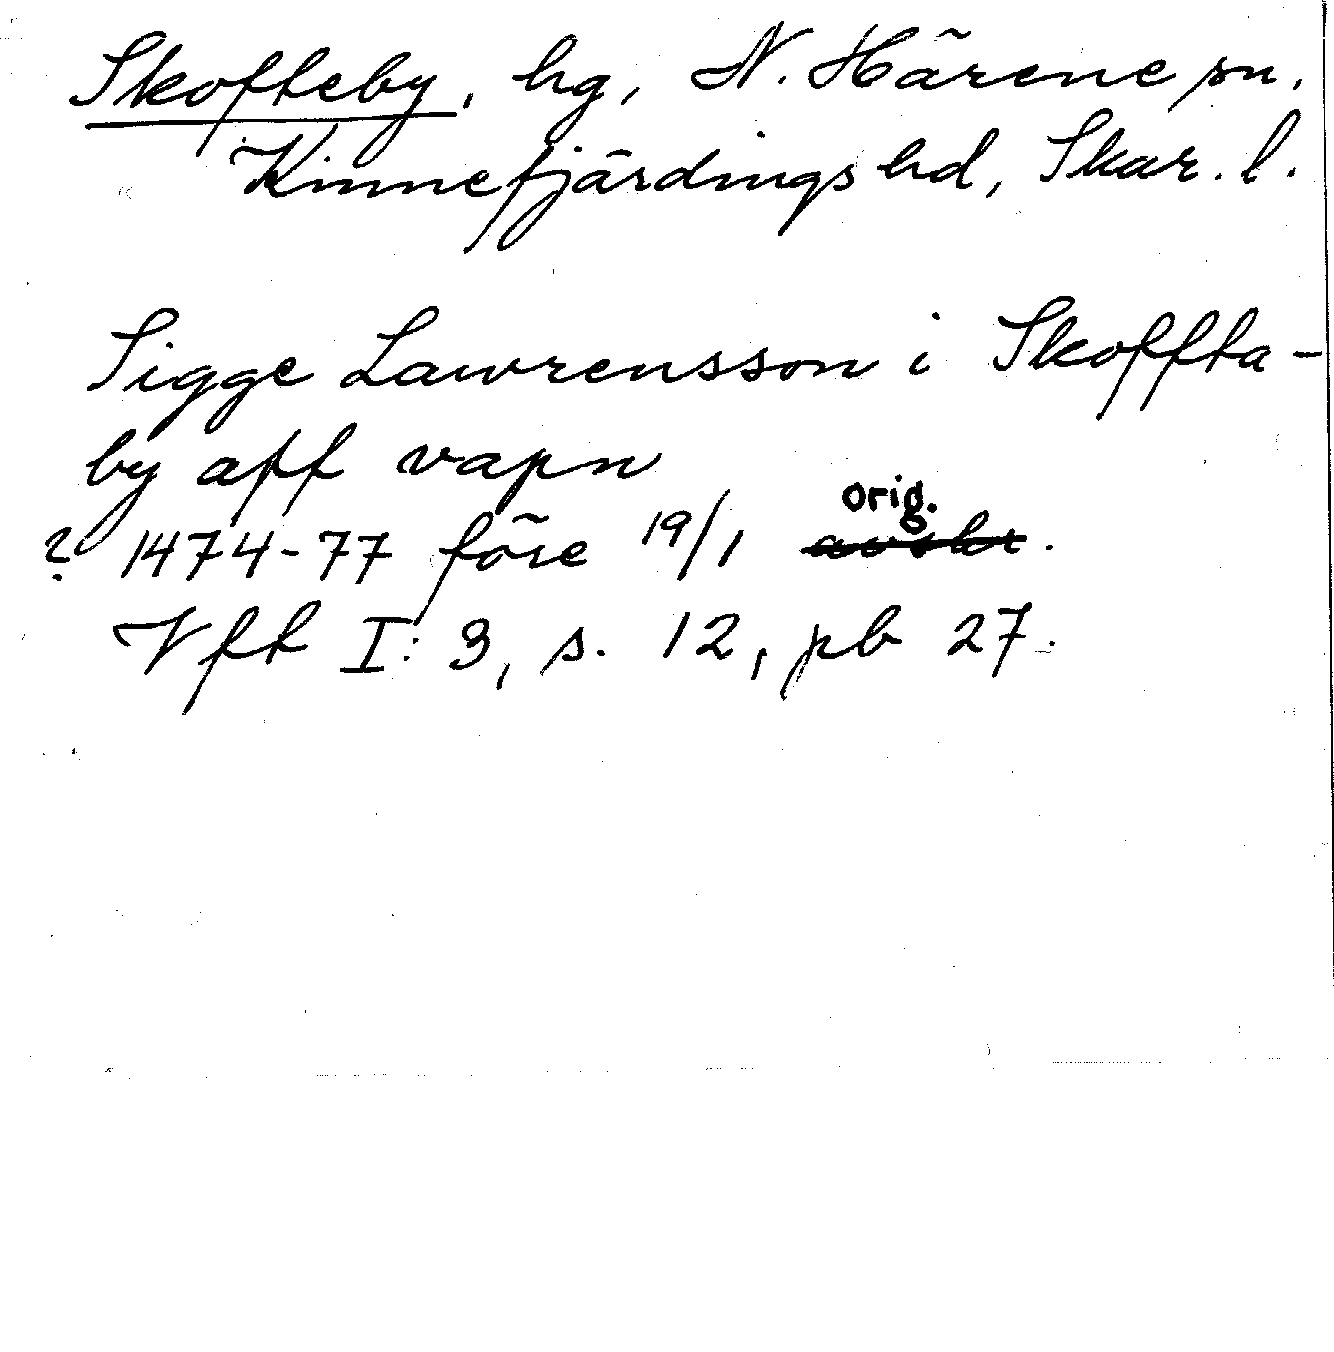 Skofteby, hg, N. Härene sn,
Kinnefjärdings hd, Skar. l.
Sigge Lawrensson i Skoffta-
by aff vapn
orig.
? 1474-77 före 19/1 avskr.
Vft I: 3, s. 12, pb 27.